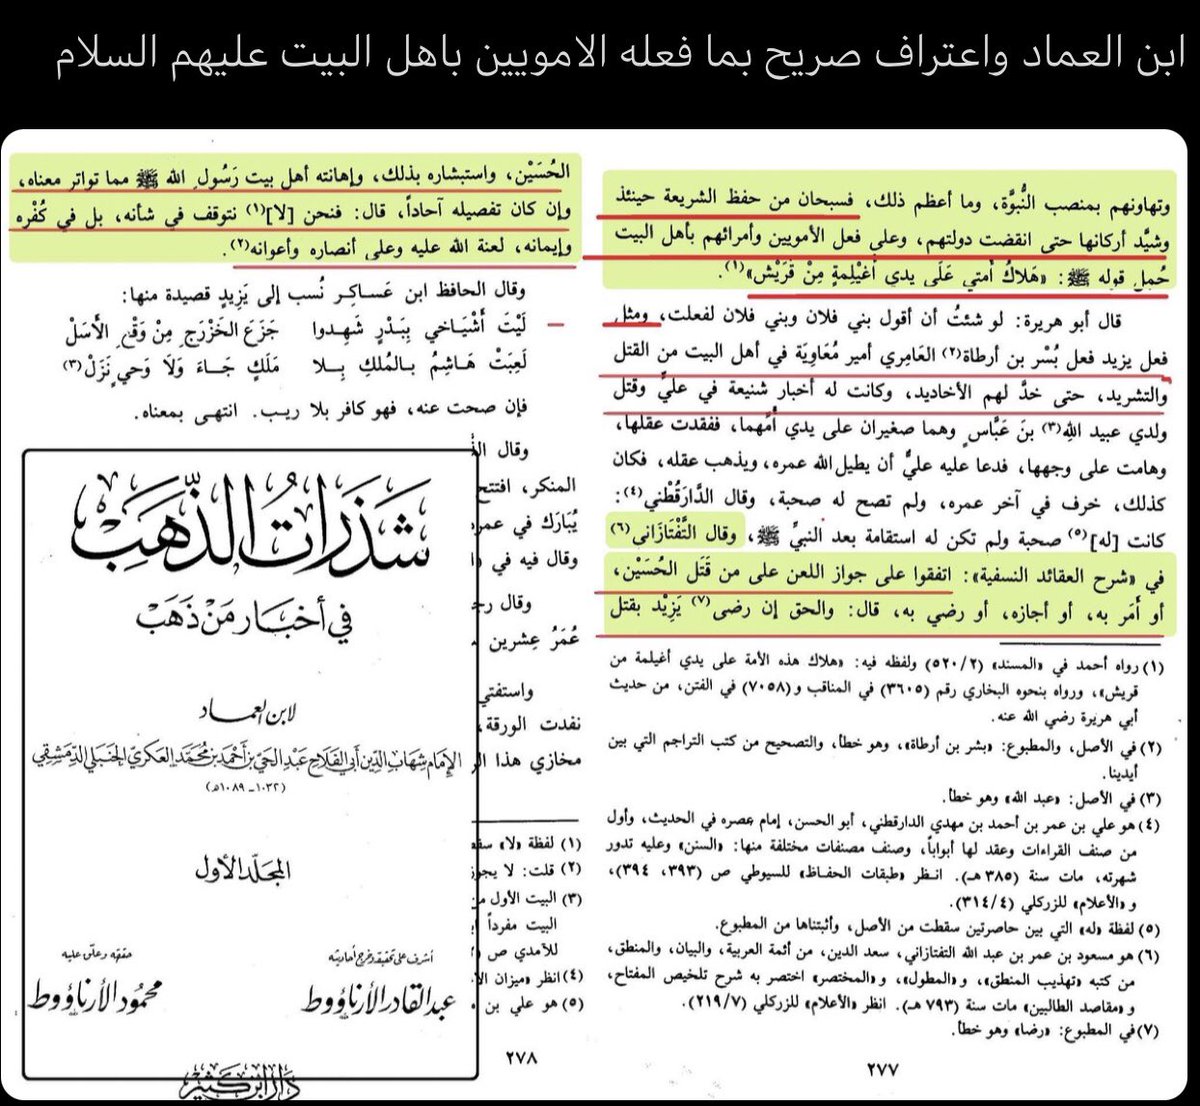 ابن العماد واعتراف صريح بما فعله الامويين باهل البيت عليهم السلام
وتهاونهم بمنصب النُّبوَّة، وما أعظم ذلك، فسبحان من حفظ الشريعة حينئذ
وشيَّد أركانها حتى انقضت دولتهم، وعلى فعل الأمويين وأمرائهم بأهل البيت
حُمل قوله ﷺ: «هَلاكُ أمتي عَلَى يدي أُغَيْلِمةٍ مِنْ قُرَيْش»(١).
قال أبو هريرة: لو شئتُ أن أقول بني فلان وبني فلان لفعلت، ومثل
فعل يزيد فعل بُسْر بن أرطاة(٢) العَامِري أمير مُعَاوِيَة في أهل البيت من القتل
والتشريد، حتى خدَّ لهم الأخاديد، وكانت له أخبار شنيعة في عليٍّ وقتل
ولدي عبيد اللهِ(٣) بنَ عَبَّاسٍ وهما صغيران على يدي أمِّهما، ففقدت عقلها،
وهامت على وجهها، فدعا عليه عليٌّ أن يطيل الله عمره، ويذهب عقله، فكان
كذلك، خرف في آخر عمره، ولم تصح له صحبة، وقال الدَّارَقُطْني(٤):
كانت [له](٥) صحبة ولم تكن له استقامة بعد النبيِّ ﷺ، وقال التَّفْتَازَانى(٦)
في «شرح العقائد النسفية»: اتفقوا على جواز اللعن على من قَتَل الحُسَيْن،
أو أَمَر به، أو أجازه، أو رضي به، قال: والحق إن رضى(٧) يَزِيْد بقتل
(١) رواه أحمد في «المسند» (٥٢٠/٢) ولفظه فيه: «هلاك هذه الأمة على يدي أغيلمة من
قريش»، ورواه بنحوه البخاري رقم (٣٦٠٥) في المناقب و(٧٠٥٨) في الفتن، من حديث
أبي هريرة رضي الله عنه.
(٢) في الأصل، والمطبوع: «بشر بن أرطاة»، وهو خطأ، والتصحيح من كتب التراجم التي بين
أيدينا.
(٣) في الأصل: «عبد الله» وهو خطأ.
(٤) هو علي بن عمر بن أحمد بن مهدي الدارقطني، أبو الحسن، إمام عصره في الحديث، وأول
من صنف القراءات وعقد لها أبواباً، وصنف مصنفات مختلفة منها: «السنن» وعليه تدور
شهرته، مات سنة (٣٨٥ هـ). انظر «طبقات الحفاظ» للسيوطي ص (٣٩٣، ٣٩٤)،
و«الأعلام» للزركلي (٣١٤/٤).
(٥) لفظة «له» التي بين حاصرتين سقطت من الأصل، وأثبتناها من المطبوع.
(٦) هو مسعود بن عمر بن عبد الله التفتازاني، سعد الدين، من أئمة العربية، والبيان، والمنطق،
من كتبه «تهذيب المنطق»، و«المطول»، و«المختصر» اختصر به شرح تلخيص المفتاح،
و«مقاصد الطالبين» مات سنة (٧٩٣ هـ). انظر «الأعلام» للزركلي (٢١٩/٧).
(٧) في المطبوع: «رضا» وهو خطأ.
٢٧٧
الحُسَيْن، واستبشاره بذلك، وإهانته أهل بيت رَسُولِ الله ﷺ مما تواتر معناه،
وإن كان تفصيله آحاداً، قال: فنحن [لا](١) نتوقف في شأنه، بل في كُفْره
وإيمانه، لعنة الله عليه وعلى أنصاره وأعوانه(٢).
وقال الحافظ ابن عَساكِر نُسب إلى يَزِيدٍ قصيدة منها:
لَيْتَ أَشْيَاخي بِبَدْرٍ شَهِدوا جَزَعَ الخَزْرَجِ مِنْ وَقْعِ الأَسَلْ
لَعِبَتْ هَاشِمُ بالمُلكِ بِلا مَلَكٍ جَاءَ وَلَا وَحيٍ نَزَلْ(٣)
فإن صحت عنه، فهو كافر بلا ريب. انتهى بمعناه.
وقال
المنكر، افتتح
يُبَارَك في عمره
وقال فيه في
وقال رج
عُمَرُ عِشرين
واستفتي
نفدت الورقة،
مخازي هذا
(١) لفظة «لا» سقط
(٢) قلت: لا يجوز
(٣) البيت الأول من
البيت مفرداً
للآمدي ص
(٤) انظر «ميزان
(٥) هو علي بن
٢٧٨
شَذَرَاتُ الذَّهَبْ
في أخبار مَنْ ذَهَبْ
لابن العماد
الإمام شهاب الدين أبي الفلاح عبد الحي بن أحمد بن محمد العكري الحنبلي الدمشقي
(١٠٣٢ - ١٠٨٩ هـ)
المجلد الأول
أشرف على تحقيقه وخرج أحاديثه
عبد القادر الأرناؤوط
حققه وعلق عليه
محمود الأرناؤوط
دار ابن كثير